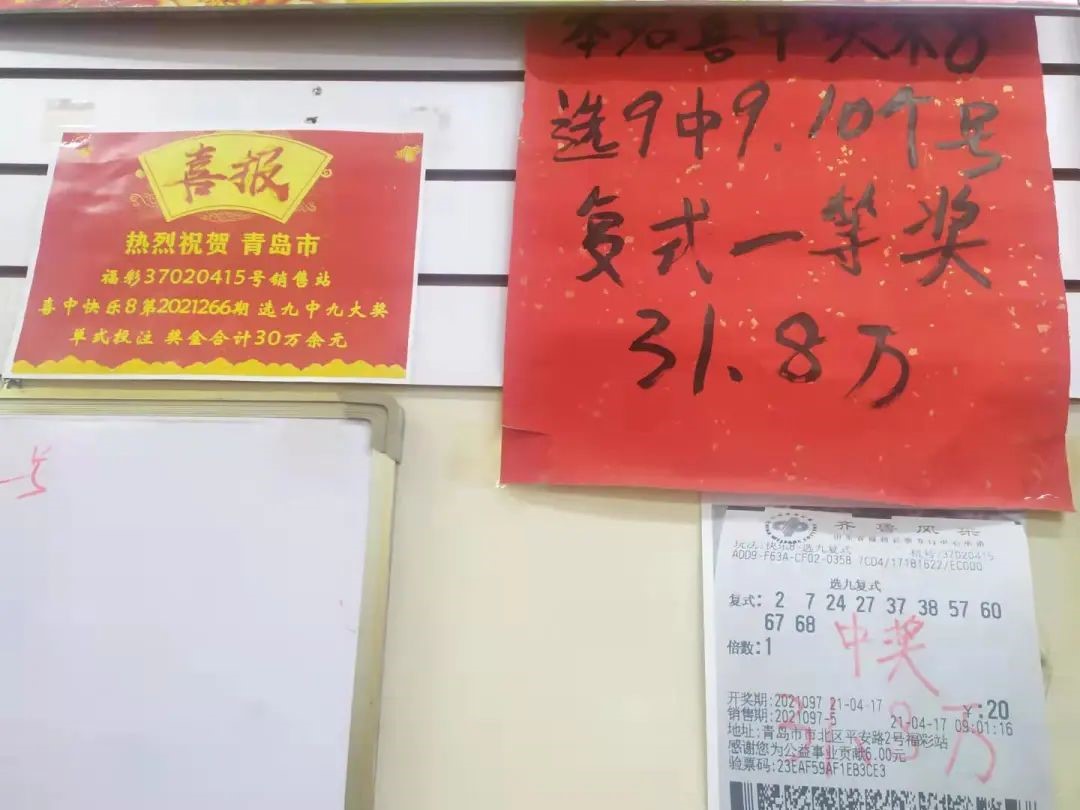 喜报
热烈祝贺 青岛市
福彩37020415号销售站
喜中快乐8第2021266期 选九中九大奖
单式投注 奖金合计30万余元
选9中9.
号
复式一等奖
31.8万
齐鲁风采
玩法:快乐8-选九复式 机号:37020415
A0D9-F63A-CF02-035B 7CD4/17181622/EC000
选九复式
复式: 2 7 24 27 37 38 57 60
67 68
倍数:1
中奖
开奖期:2021097 21-04-17 ¥:20
销售期:2021097-5 21-04-17 09:01:16
地址:青岛市市北区平安路2号福彩站
感谢您为公益事业贡献6.00元
验票码:23EAF59AF1EB3CE3
31.8万